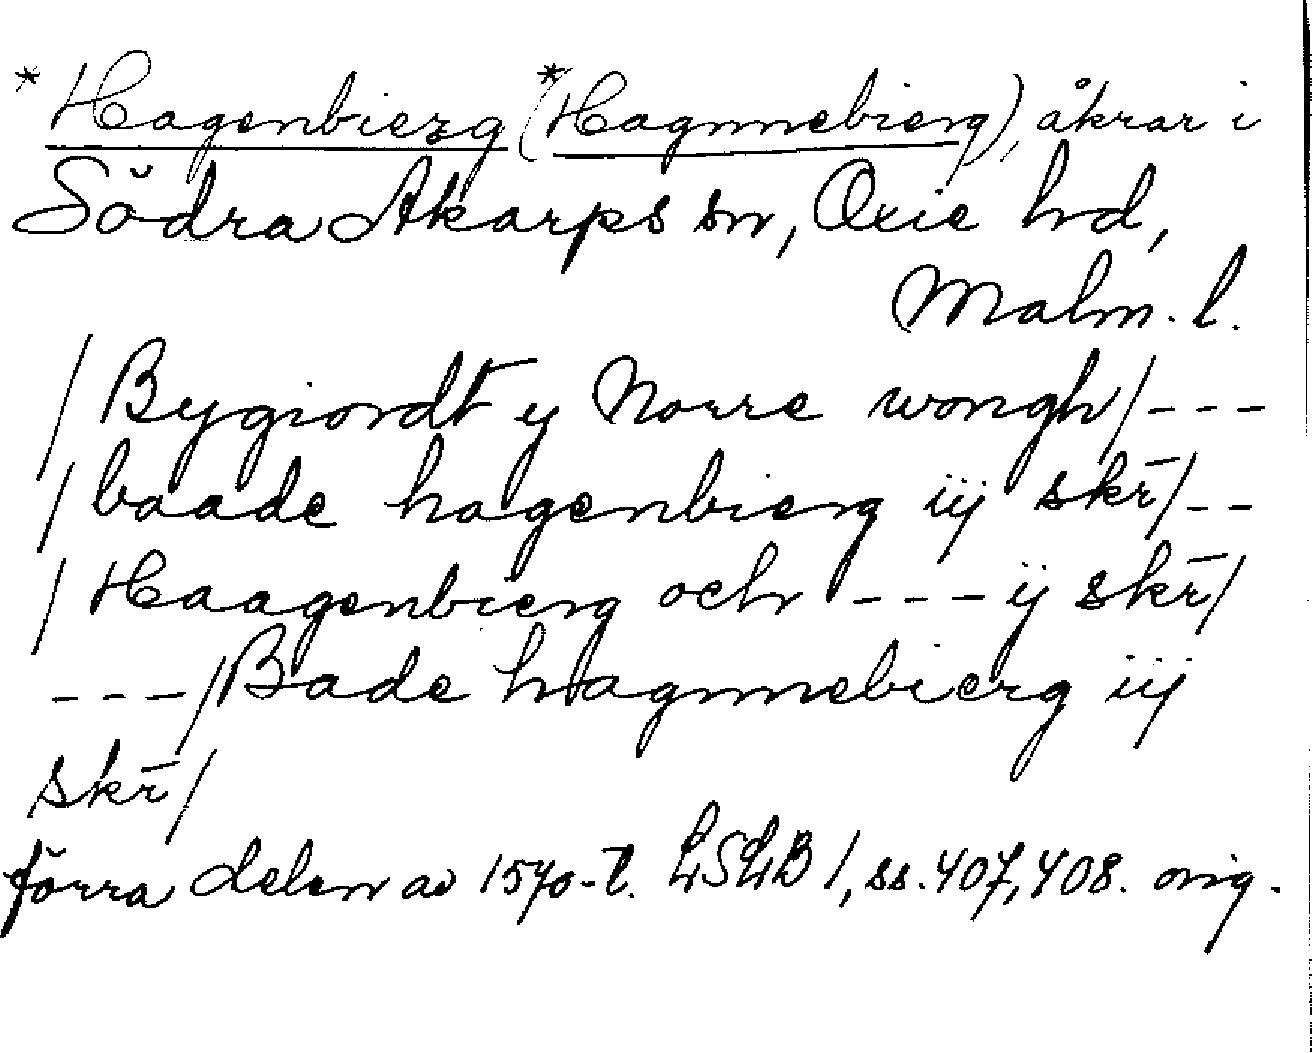 *Hagenbierg (*Hagnnebierg), åkrar i
Södra Åkarps sn, Oxie hd,
Malm. l.
/Bygiordt y Norre wongh/---
/baade hagenbierg iij skr̄/--
/Haagenbierg och --- ij skr̄/
---/Bade hagnnebierg iij
skr̄/
förra delen av 1570-t. LSLB 1, ss. 407, 408. orig.